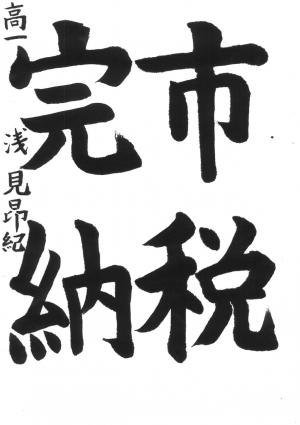 市税
完納
高一 浅見昂紀